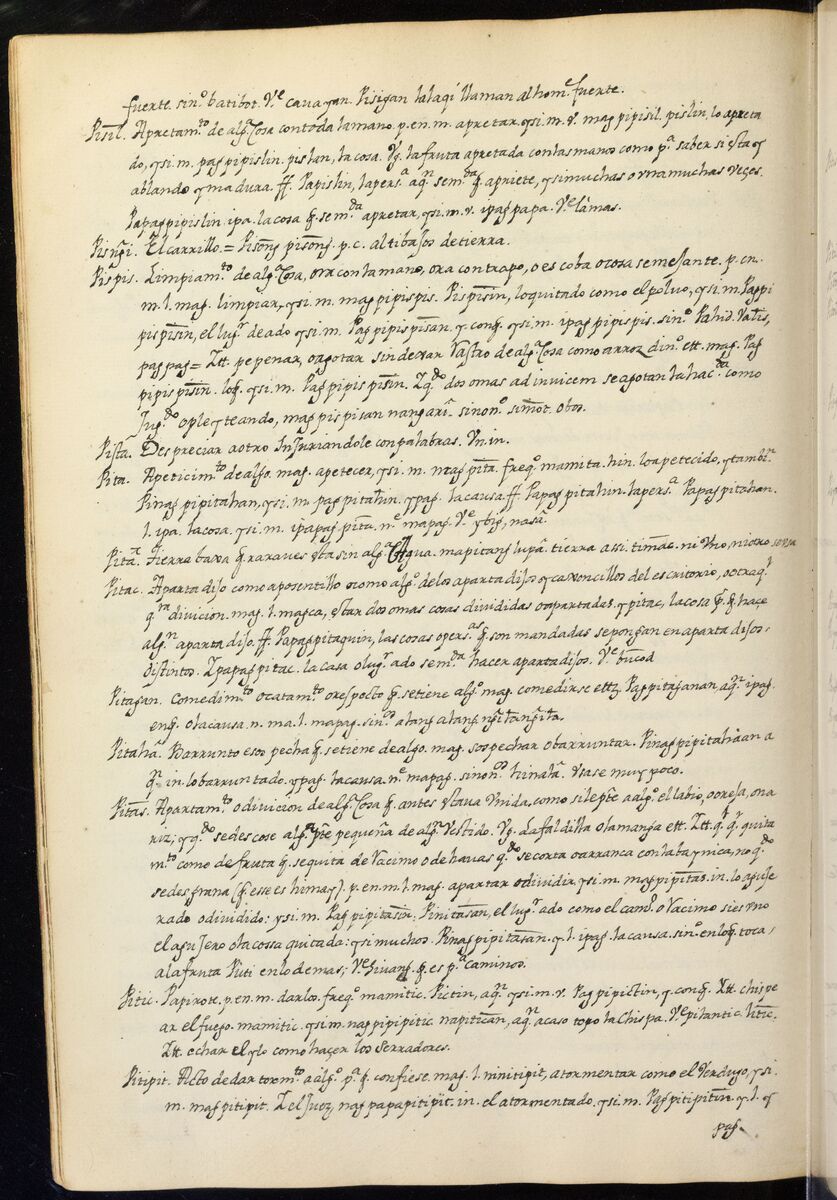 fuerte. sin.º batibot. V.e cavayan. Pisigan talaqi llaman al hom.e fuerte.
Pisil. Apretam.to de alg.a Cosa con toda la mano. p. en. m. apretar. y si. m. v. mag pipisil. pislin, lo apreta
do, y si. m. pag pipislin. pislan, la cosa. Vg. la fruta apretada con las manos como p.a saber si esta
ablando y madura. ff. Papislin, la pers.a aq.n sem.da q. apriete, y si muchas o una muchas veçes.
Papag pipislin. ipa. la cosa q. se m.da apretar, y si. m. v. ipag papa. V.e lamas.
Pisngi. El carrillo. = Pisong pisong. p. c. altibajos de tierra.
Pispis. Limpiam.to de alg.a Cosa, ora con la mano, ora con trapo, o escoba o cosa semejante. p. en.
m. l. mag. limpiar, y si. m. mag pipispis. Pispisin, lo quitado como el polvo, y si. m. Pag pi
pispisin, el lug.r de ado y si. m. Pag pipispisan. y con q. y si. m. ipag pipispis. sin.º Pahid. Valis,
pagpag = Itt. pepenar, o agotar sin dexar Rastro de alg.a Cosa como arroz, din.º ett. mag. Pag
pipispisin. lo q. y si. m. Pag pipispisin. Iq.do dos o mas ad invicem se agotan la hac.da como
Jug.do o pleyteando, mag pispisan nang ari. sinon.º simot. obos.
Pista. Despreciar a otro Injuriandole con palabras. Vn. in.
Pita. Apeticim.to de algo. mag. apetecer, y si. m. mag pita. freq.º mamita. hin. lo apetecido, y tambi.n
Pinag pipitahan, y si. m. pag pitahin. y pag. la causa. ff. Papag pitahin. la pers.a Papag pitahan.
l. ipa. la cosa. y si. m. ipapag pita. n.e mapag. V.e ybig, nasa.
Pita. Tierra baxa q. raraves esta sin alg.a Agua. mapitang lupa. tierra assi. timac. ni Uno, ni otro se usa
Pitac. Apartadijo como aposentillo o como alg.º de los apartadijos y caxoncillos del escritorio, o otra q.l
q.ra divicion. mag. l. magca, estar dos o mas cosas divididas o apartadas. y pitac, la cosa q. q. haçe
alg.n apartadijo. ff. Papag pitaquin, las cosas o pers.as q. son mandadas se pongan en apartadijos
distintos. Ipapag pitac. la casa o lug.r ado sem.da hacer apartadijos. V.e bucod
Pitagan. Comedim.to o catam.to o respecto q. se tiene alg.º mag. comedirse ett.z Pag pitaganan, aq.n ipag.
en q. o la causa. n. ma. l. mapag. sin.º alang alang ngitangita.
Pitaha. Barrunto e sospecha q. se tiene de algo. mag. sospechar o barruntar. Pinag pipitahaan a
q.n in. lo barruntado. y pag. la causa. n.e mapag. sinon.º hinala. Usase muy poco.
Pitas. Apartam.to o divicion de alg.a Cosa q. antes estava Unida, como si le p.te a alg.º el labio, o oreja, o na
riz; y q.do se descose alg.a p.te pequeña de alg.a Vestido. Vg. La faldilla o la manga ett. Itt. q.l q.r quita
m.to como de fruta q. se quita de Racimo o de havas q.do se corta o arranca con la baynica, no q.do
se desgrana (q. esse es himay). p. en. m. l. mag. apartar o dividir, y si. m. mag pipitas. in. lo aguje
rado o dividido: y si. m. Pag pipitasin: Pinitasan, el lug.r ado como el cam.º o Racimo si es uno
el agujero o la cossa quitada: y si muchos. Pinag pipitasan. y. l. ipag. la causa. sin.º en lo q. toca
a la fruta Puti en lo demas; V.e hivang q. es p.a caminos.
Pitic. Papirote. p. en. m. darlos. freq.º mamitic. Pictin, aq.n y si. m. v. Pag pipictin, y con q. Itt. chispe
ar el fuego. mamitic. y si. m. nag pipipitic. napitican, aq.n acaso topo la Chispa. V.e pilantic. litic.
Itt. echar el ylo como haçer los Serradores.
Pitipit. Acto de dar torm.to a alg.º p.a q. confiese. mag. l. ninitipit, atormentar como el Verdugo, y si.
m. mag pitipit. I el Juez, nag papapitipit. in. el atormentado. y si. m. Pag pitipitin. y. l. y
pag.